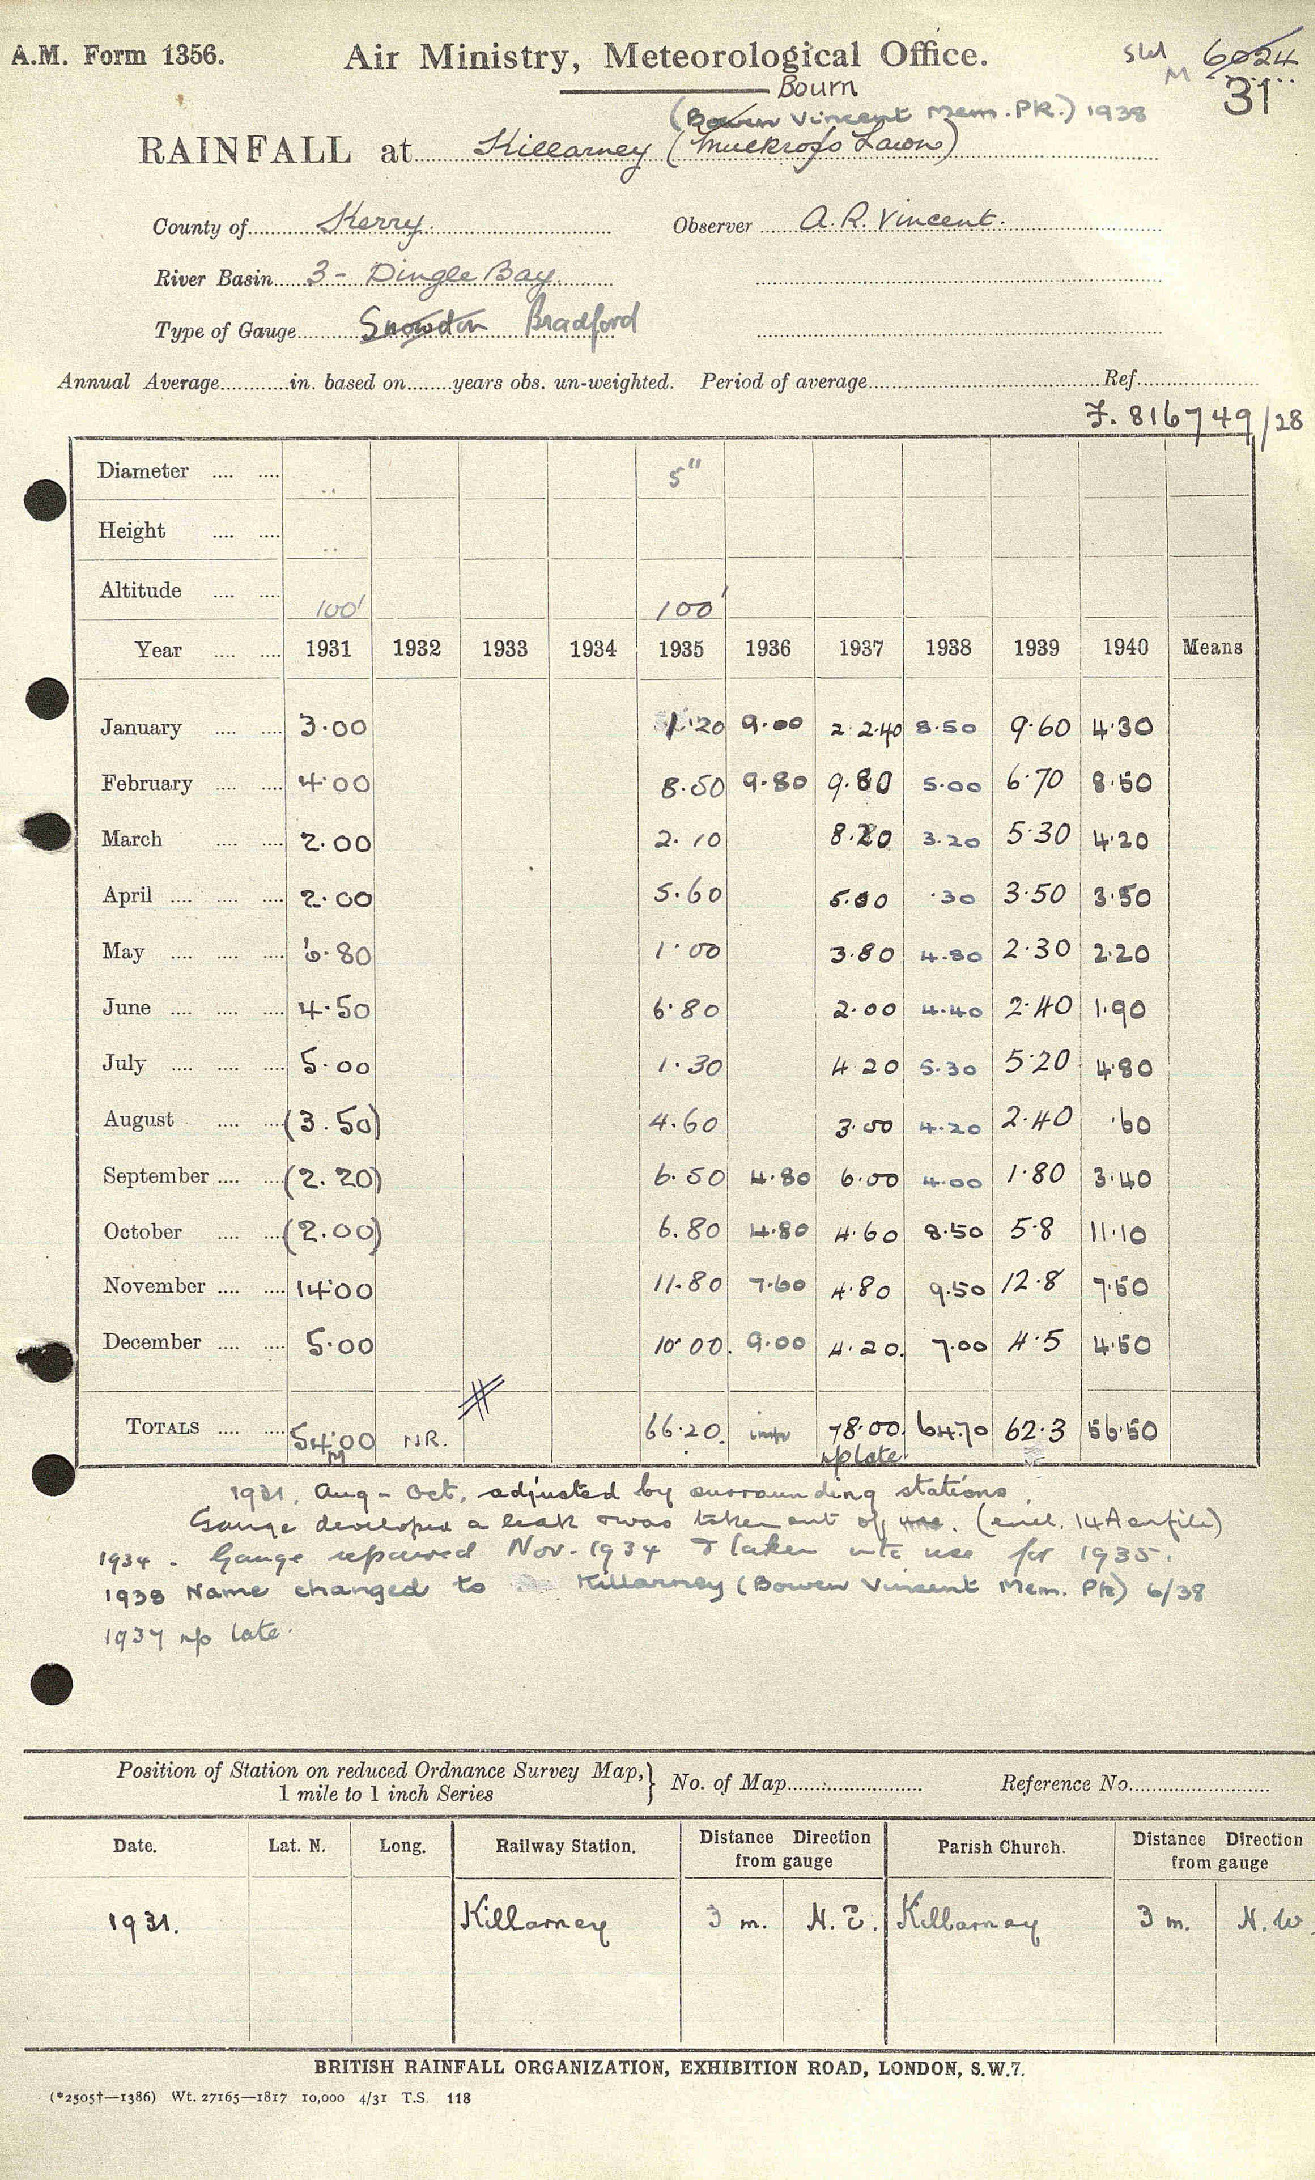 A.M. Form 1356.
Air Ministry, Meteorological Office.
SW 6024
M 31
Bourn
(Bowen Vincent Mem. PK.) 1938
RAINFALL at Killarney (Muckross Lawn)
County of Kerry Observer A.R. Vincent.
River Basin 3 - Dingle Bay
Type of Gauge Snowdon Bradford
Annual Average in. based on years obs. un-weighted. Period of average Ref.
F. 816749/28
Diameter 5"
Height
Altitude 100' 100'
Year 1931 1932 1933 1934 1935 1936 1937 1938 1939 1940 Means
January 3.00 1.20 9.00 22.40 8.50 9.60 4.30
February 4.00 8.50 9.80 9.80 5.00 6.70 8.50
March 2.00 2.10 8.20 3.20 5.30 4.20
April 2.00 5.60 5.00 .30 3.50 3.50
May 6.80 1.00 3.80 4.80 2.30 2.20
June 4.50 6.80 2.00 4.40 2.40 1.90
July 5.00 1.30 4.20 5.30 5.20 4.80
August (3.50) 4.60 3.00 4.20 2.40 .60
September (2.20) 6.50 4.80 6.00 4.00 1.80 3.40
October (2.00) 6.80 4.80 4.60 8.50 5.8 11.10
November 14.00 11.80 7.60 4.80 9.50 12.8 7.50
December 5.00 10.00. 9.00 4.20. 7.00 4.5 4.50
#
TOTALS 54.00 NR. 66.20. 78.00. 64.70 62.3 56.50
M late
1931, Aug - Oct. adjusted by surrounding stations.
Gauge developed a leak & was taken out of use. (encl. 14A on file)
1934 - Gauge repaired Nov. 1934 & taken into use for 1935.
1938 Name changed to Killarney (Bowen Vincent Mem. PK) 6/38
1937 late.
Position of Station on reduced Ordnance Survey Map, 1 mile to 1 inch Series } No. of Map Reference No.
Date. Lat. N. Long. Railway Station. Distance Direction from gauge Parish Church. Distance Direction from gauge
1931. Killarney 3 m. N.E. Killarney 3 m. N.W.
BRITISH RAINFALL ORGANIZATION, EXHIBITION ROAD, LONDON, S.W.7.
(*2505†—1386) Wt. 27165—1817 10,000 4/31 T.S. 118